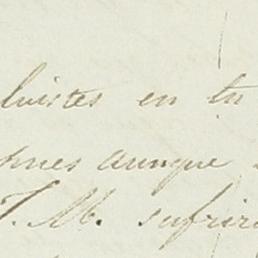 luistes en tu
pues aunque
T. M. sufrir